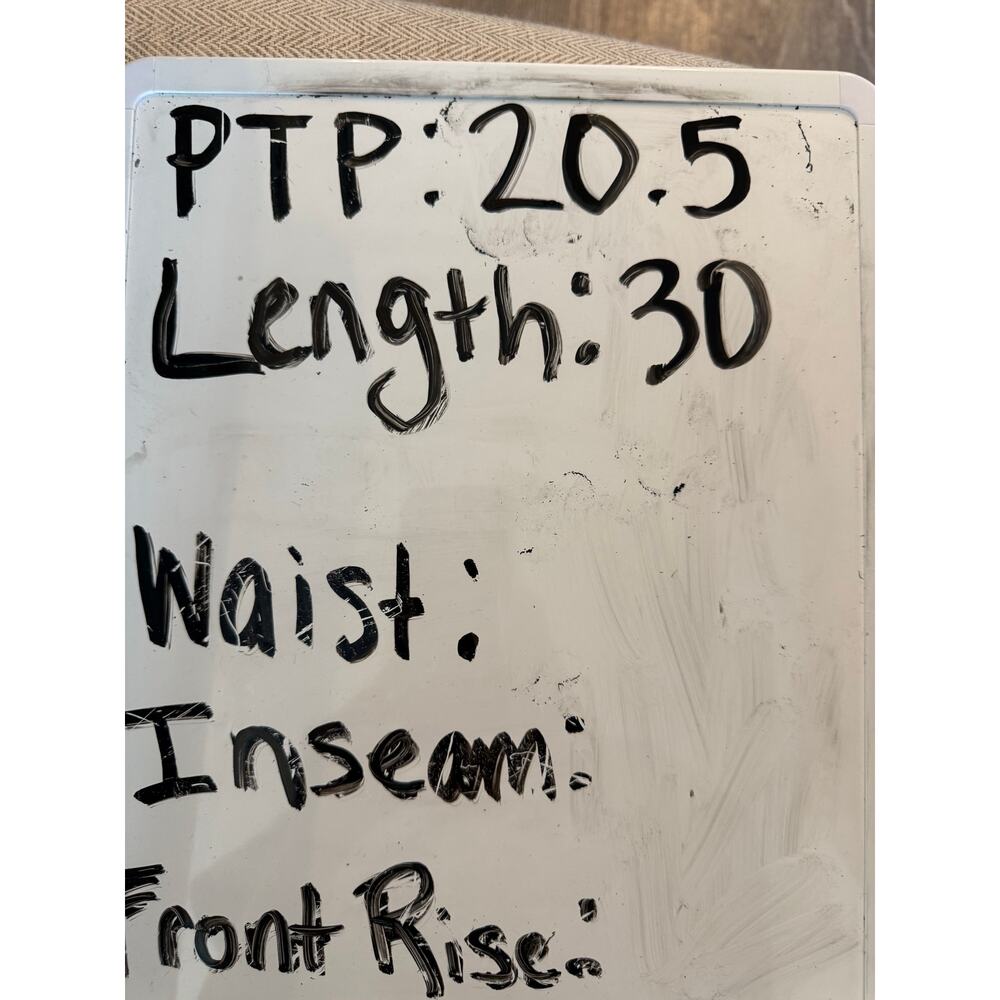 PTP: 20.5
Length: 30
Waist:
Inseam:
Front Rise: